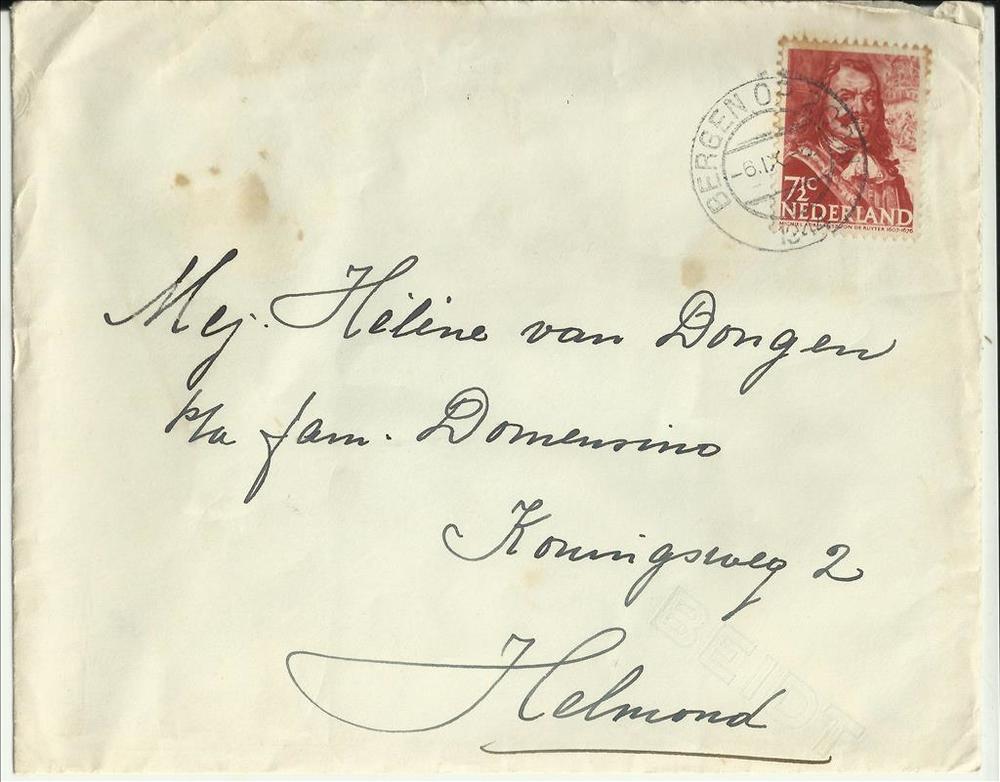 BERGEN OP
-6.IX
7½C
NEDERLAND
MICHIEL ADRIAANSZOON DE RUYTER 1607-1676
Mej. Hélène van Dongen
p/a fam. Domensino
Koningsweg 2
Helmond
BEIDT